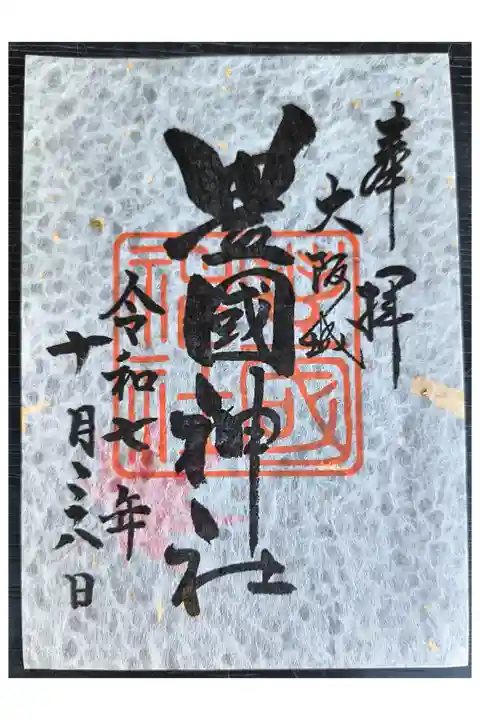 奉拝
大阪城
豊國神社
令和七年
十月二六日